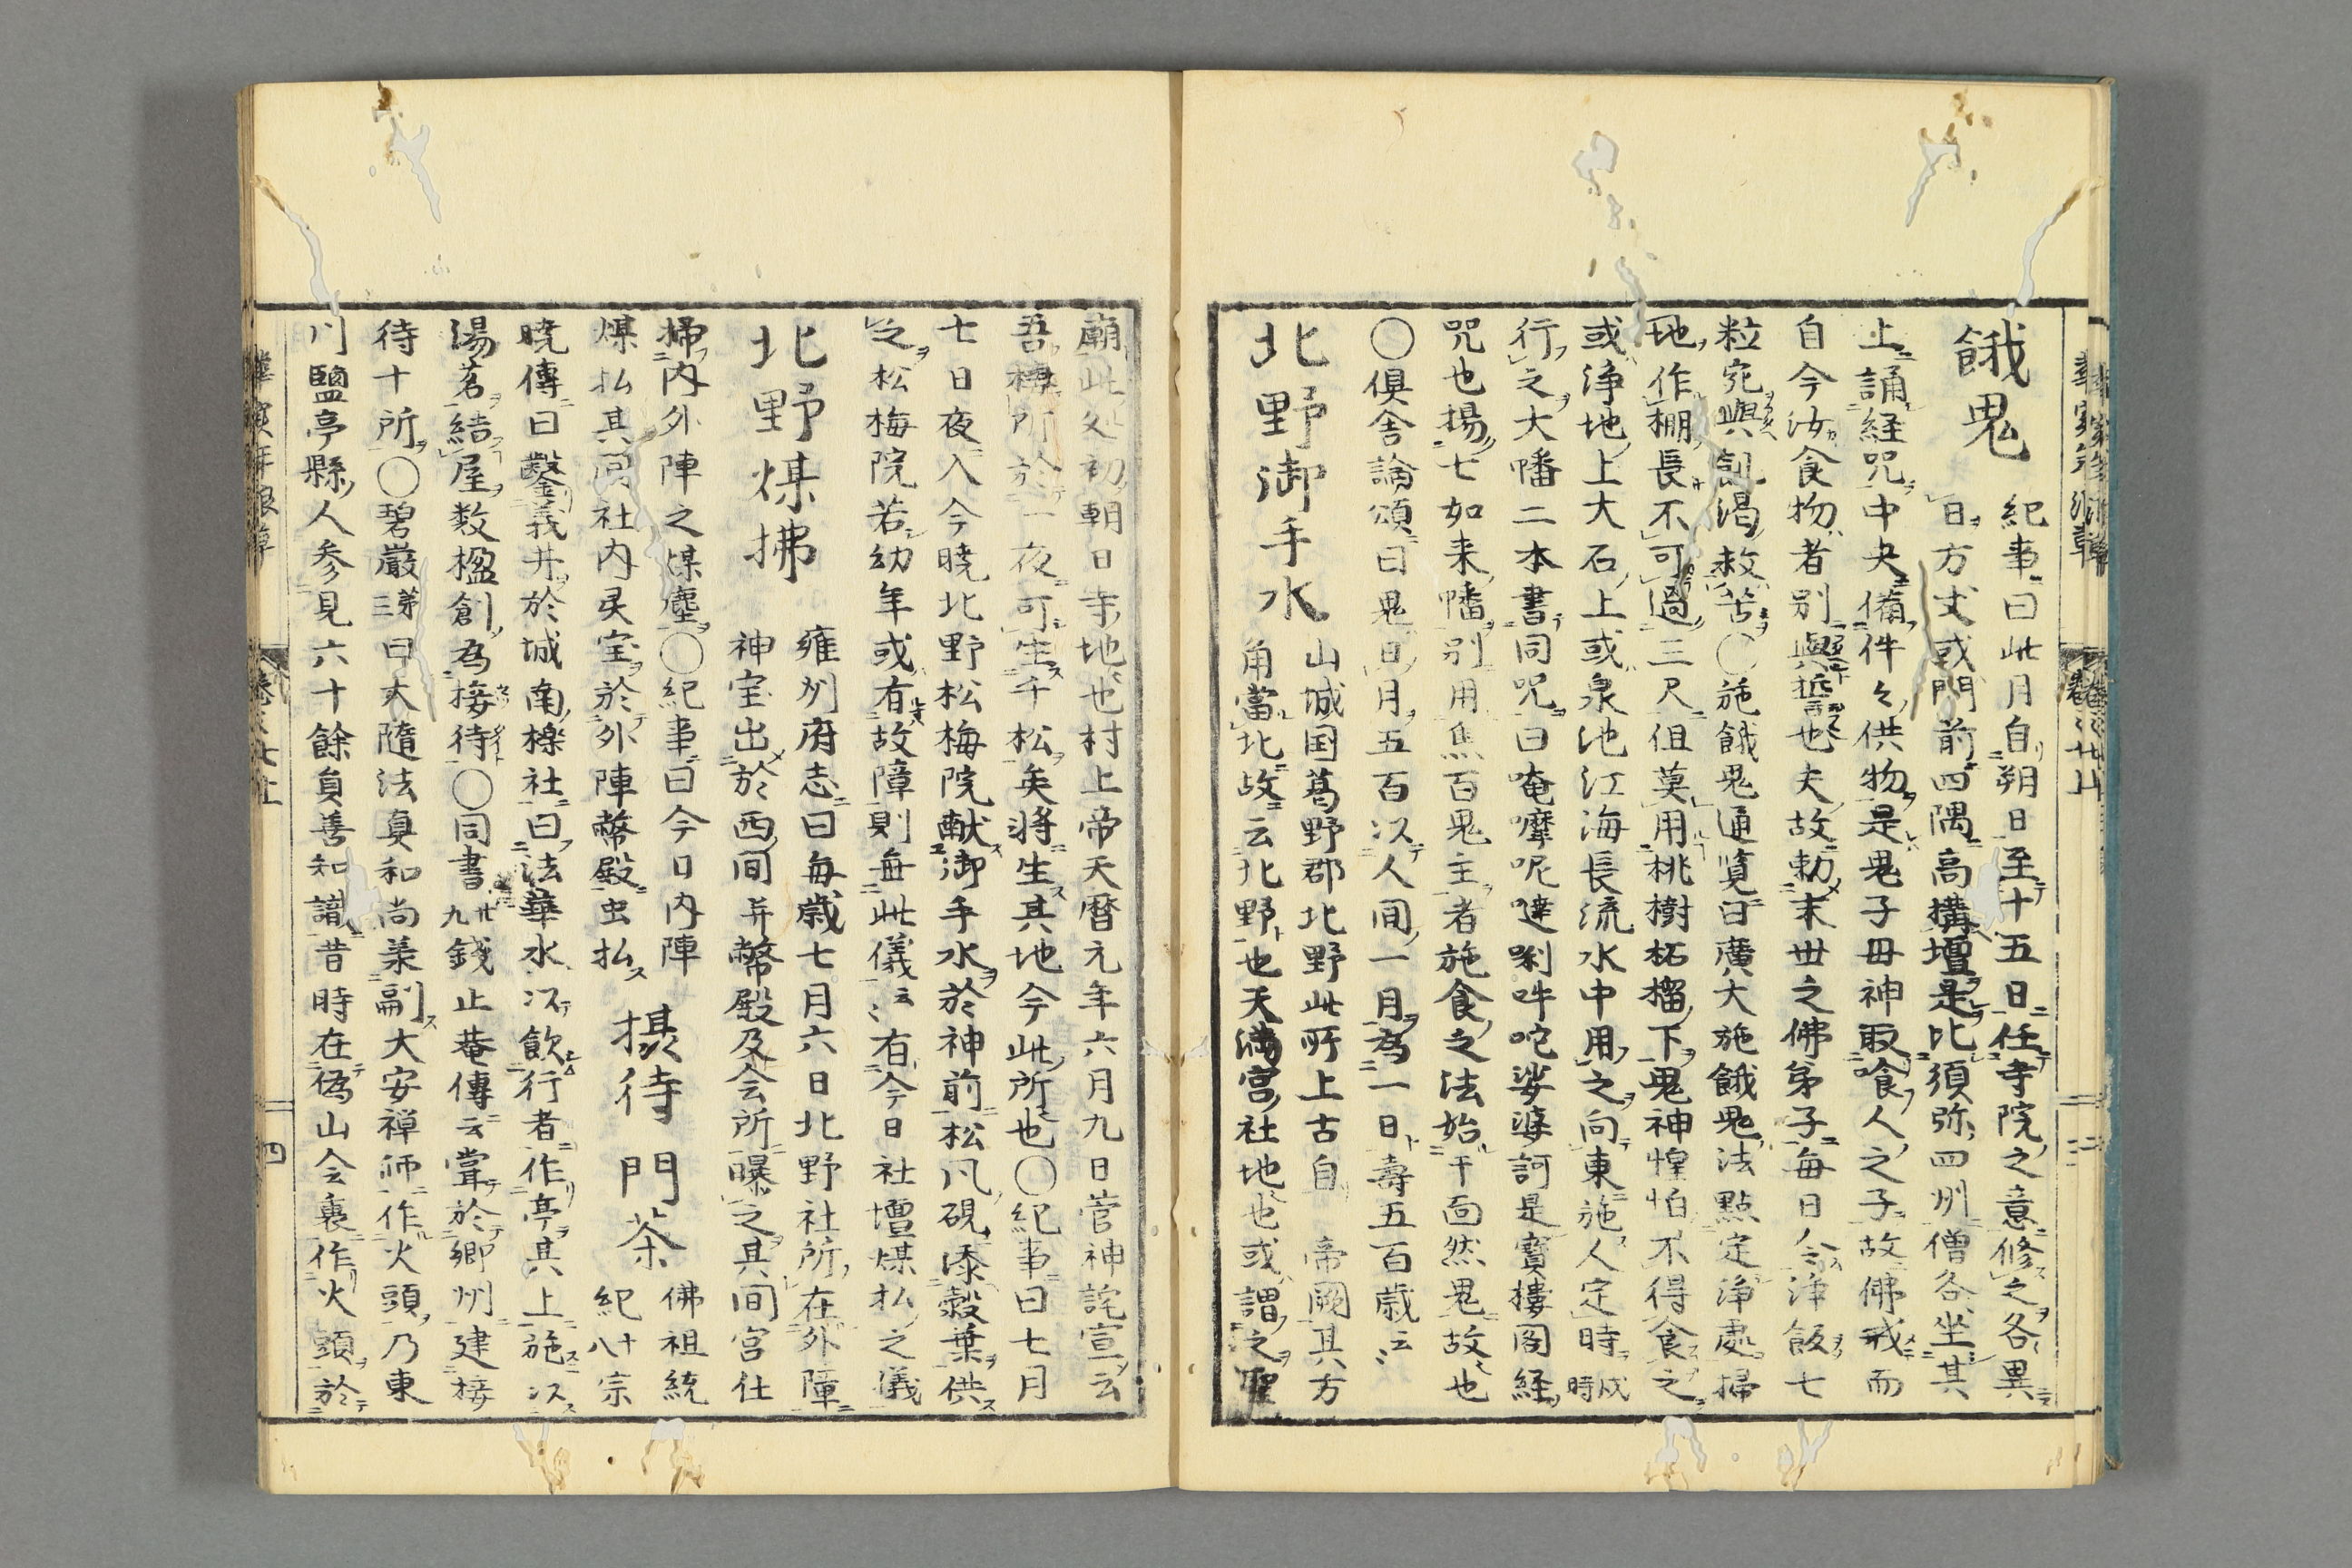 餓鬼
紀事曰此月自朔日至十五日任寺院之意修之各異
日方丈或門前四隅高搆壇是比須弥四州僧各坐其
上誦経咒中央備件々供物是鬼子母神取喰人之子故佛戒而
自今汝食物者別與誓也夫故勅末世之佛弟子毎日令浄飯七
粒宛與飢渇救苦〇施餓鬼通覧曰廣大施餓鬼法點定浄處掃
地作棚長不可過三尺但莫用桃樹柘榴下鬼神惶怕不得食之
或浄地上大石上或泉池江海長流水中用之向東施人定時戍時
行之大幡二本書同咒曰唵嚤呢噠唎吽咜娑婆訶是寳樓閣経
咒也揚七如来幡別用焦百鬼主者施食之法始于面然鬼故也
〇俱舍論頌曰鬼日月五百以人间一月為一日壽五百歳云〻
北野御手水
山城国葛野郡北野此所上古自 帝闕其方
角當北故云北野也天満宮社地也或謂之聖
廟此処初朝日寺地也村上帝天暦元年六月九日菅神詫宣云
吾 所於一夜可生千松矣將生其地今此所也〇紀事曰七月
七日夜入今曉北野松梅院献御手水於神前松凡硯添穀葉供
之松梅院若幼年或有故障則無此儀云〻有今日社壇煤払之儀
北野煤拂
雍州府志曰毎歳七月六日北野社所在外陣
神宝出於西间并幣殿及会所曝之其间宮仕
掃内外陣之煤塵〇紀事曰今日内陣
煤払其 社内灵宝於外陣幣殿虫払
摂待 門茶
佛祖統
紀八十宗
曉傳曰鑿義井於城南櫟社曰法華水以飲行者作亭其上施以
湯茗結屋数楹創為接待〇同書廿九錢止菴傳云甞於郷州建接
待十所〇碧巌三第曰大隨法真和尚羕嗣大安禅师作火頭乃東
川鹽亭縣人参見六十餘員善知識昔時在偽山会裏作火頭於
卷之七上
四